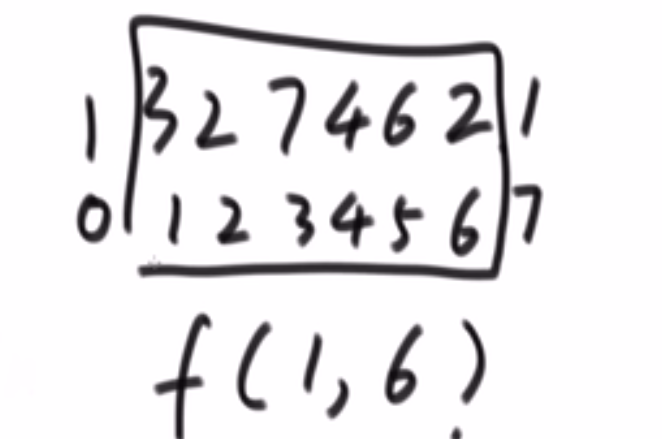 1 3 2 7 4 6 2 1
0 1 2 3 4 5 6 7
f(1,6)